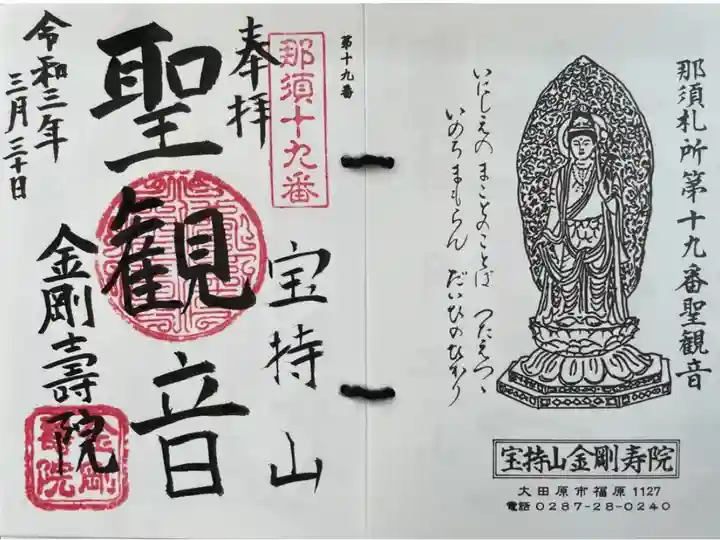 那須札所第十九番聖観音
いにしえの まことのことば つたえつゝ
いのちまもらん だいひのひかり
宝持山金剛寿院
大田原市福原1127
電話0287-28-0240
第十九番
那須十九番
奉拝
宝持山
聖観音
金剛壽院
令和三年
三月三十日
金剛
壽院